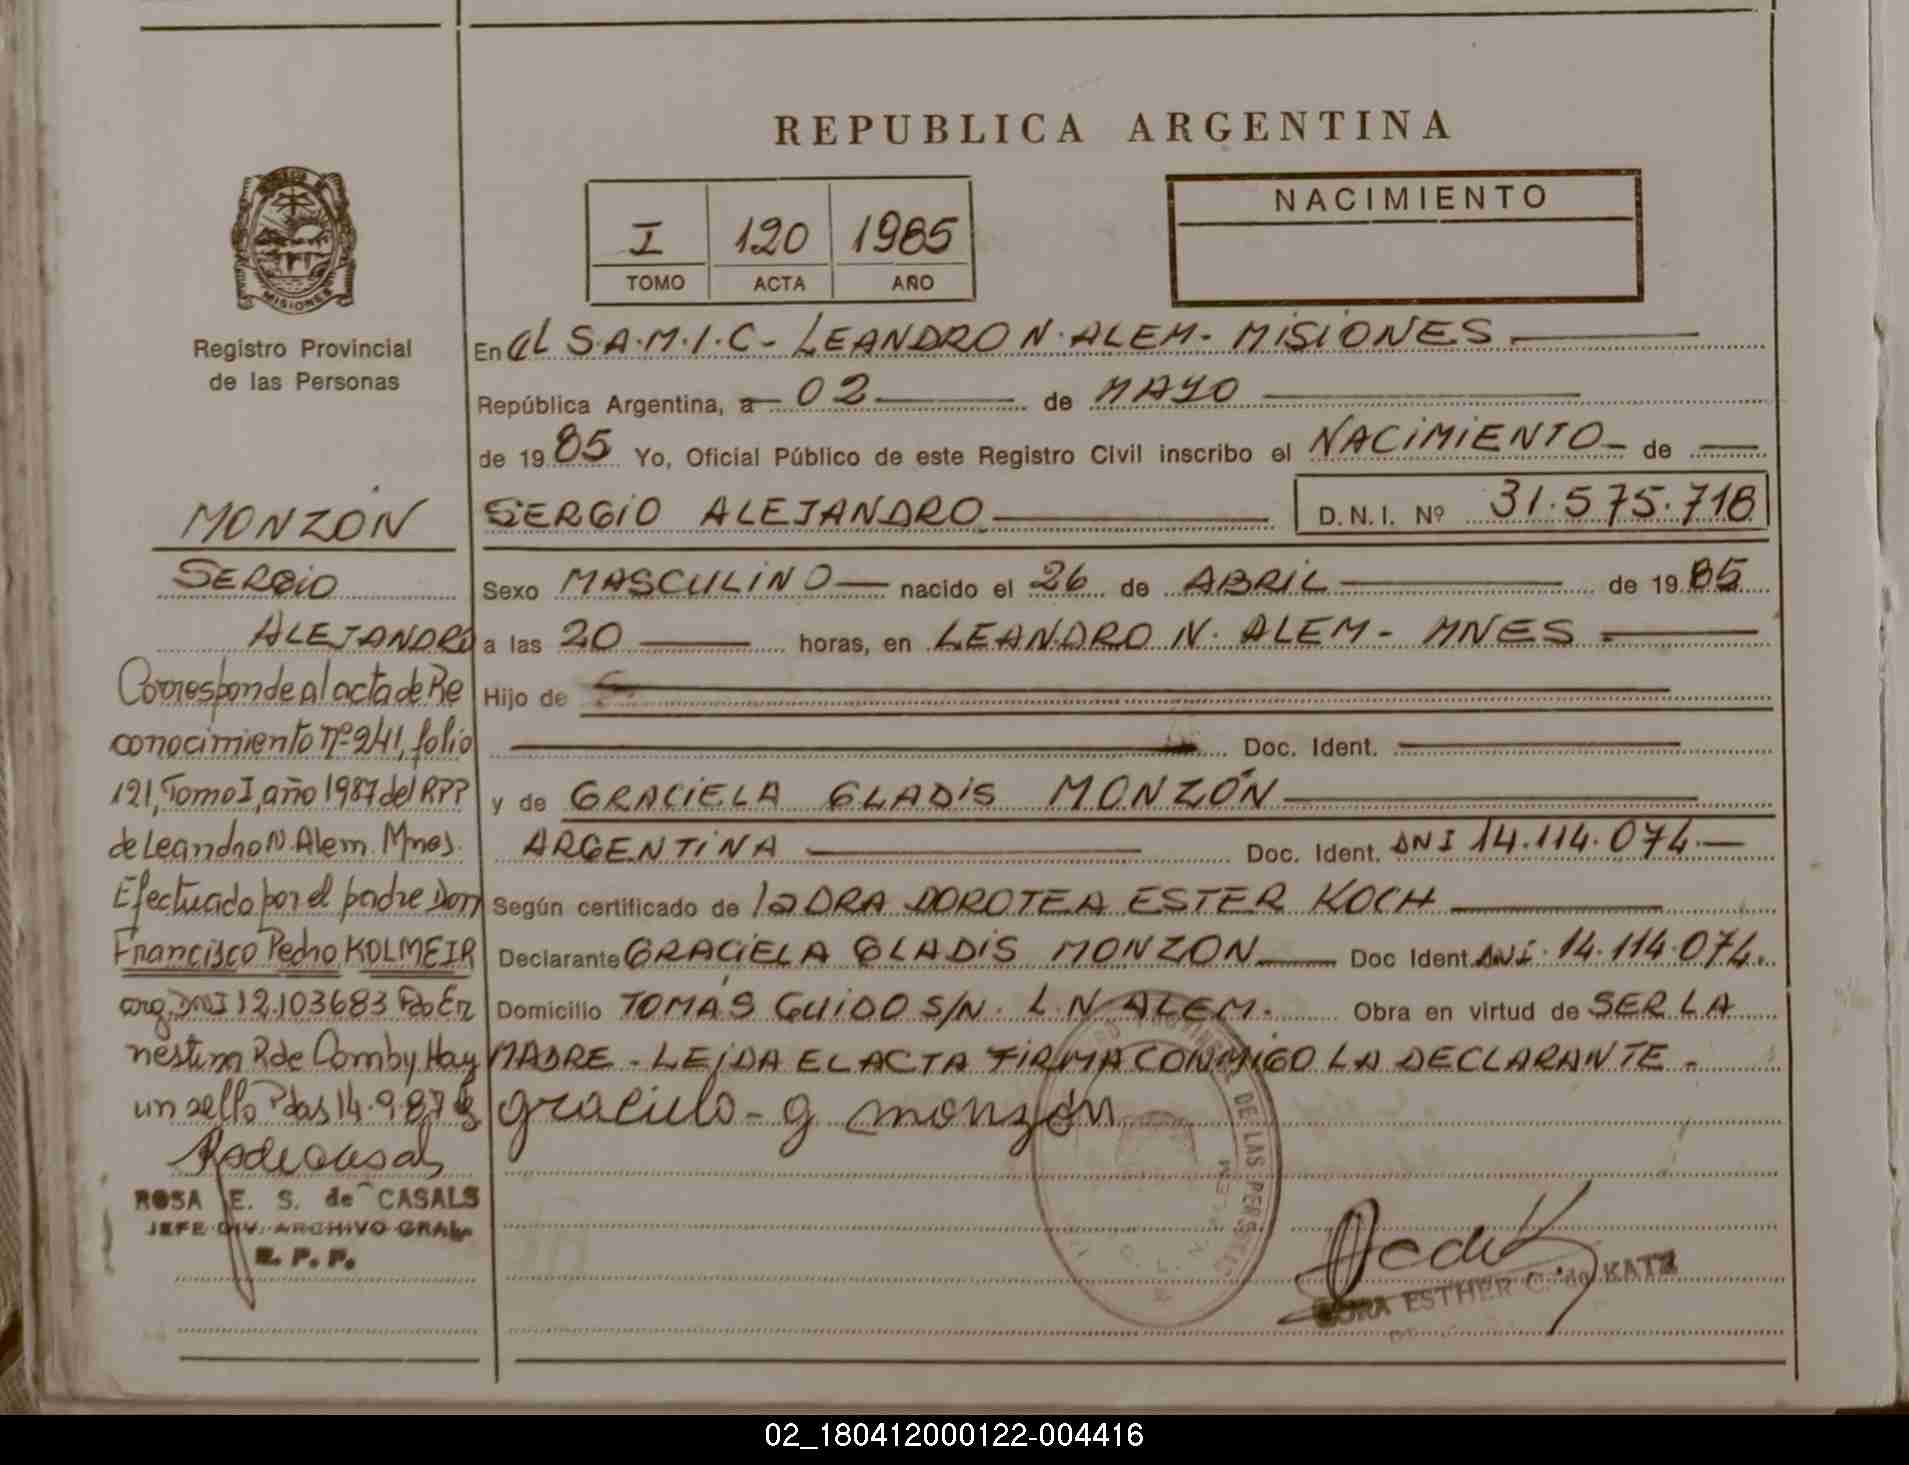 REPUBLICA ARGENTINA
NACIMIENTO
I 120 1985
TOMO ACTA AÑO
MISIONES
Registro Provincial
de las Personas
En el S.A.M.I.C- LEANDRO N. ALEM- MISIONES
República Argentina, a 02 de MAYO
de 19 85 Yo, Oficial Público de este Registro Civil inscribo el NACIMIENTO de
SERGIO ALEJANDRO D.N.I. Nº 31.575.718
Sexo MASCULINO nacido el 26 de ABRIL de 19 85
a las 20 horas, en LEANDRO N. ALEM- MNES
Hijo de
Doc. Ident.
y de GRACIELA GLADIS MONZÓN
ARGENTINA Doc. Ident. DNI 14.114.074.-
Según certificado de la DRA DOROTEA ESTER KOCH
Declarante GRACIELA GLADIS MONZON Doc Ident. DNI. 14.114.074.
Domicilio TOMÁS GUIDO S/N. L.N. ALEM. Obra en virtud de SER LA
MADRE - LEIDA EL ACTA FIRMA CONMIGO LA DECLARANTE.
graciela - g monzón
DE LAS PERSONAS
ESTHER C. de KATZ
MONZON
SERGIO
ALEJANDRO
Corresponde al acta de Re
conocimiento nº 241, folio
121, Tomo I, año 1987 del RPP
de Leandro N. Alem. Mnes.
Efectuado por el padre Don
Francisco Pedro KOLMEIR
arg. DNI 12.103683 Fdo Er
nestina R de Comby Hay
un sello Pdas 14.9.87
ROSA E. S. de CASALS
JEFE DIV. ARCHIVO GRAL.
R. P. P.
02_180412000122-004416